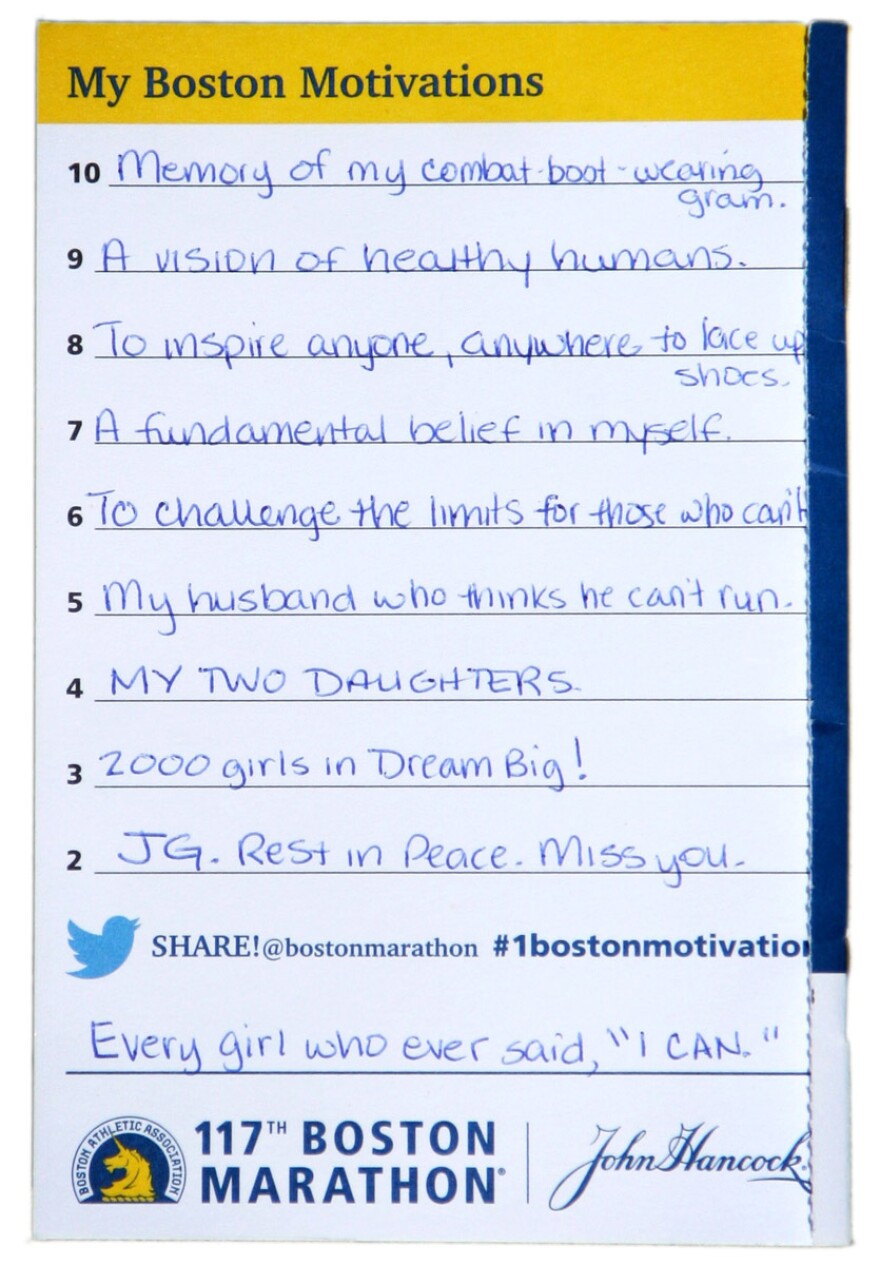 My Boston Motivations
10 Memory of my combat-boot-wearing
gram.
9 A vision of healthy humans.
8 To inspire anyone, anywhere to lace up
shoes.
7 A fundamental belief in myself.
6 To challenge the limits for those who can't
5 My husband who thinks he can't run.
4 MY TWO DAUGHTERS.
3 2000 girls in Dream Big!
2 JG. Rest in Peace. Miss you.
SHARE! @bostonmarathon #1bostonmotivation
Every girl who ever said, "I CAN."
BOSTON ATHLETIC ASSOCIATION
117TH BOSTON
MARATHON®
John Hancock